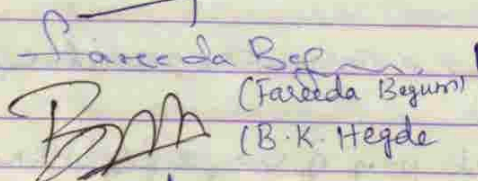 Fareeda Begum
(Fareeda Begum)
(B.K. Hegde